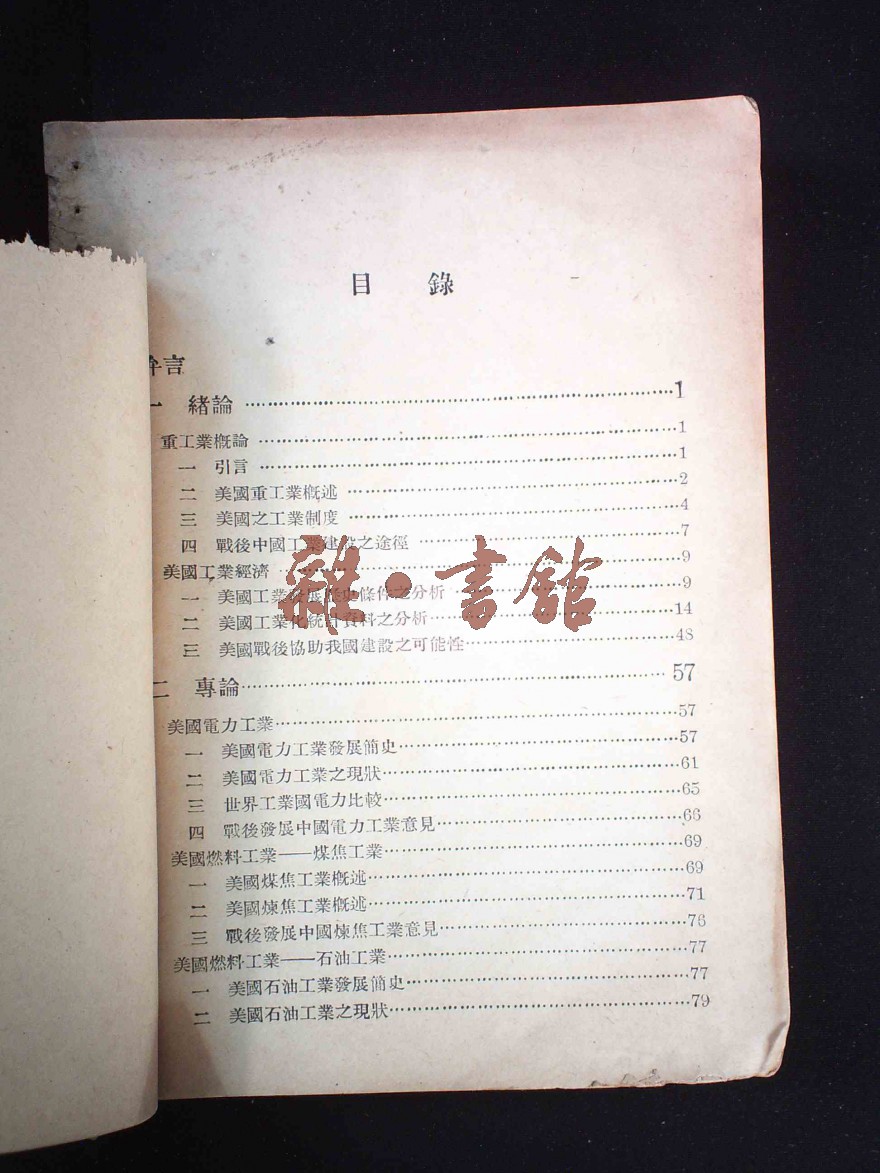 目　錄
弁言
一　緒論……1
重工業概論……1
一　引言……1
二　美國重工業概述……2
三　美國之工業制度……4
四　戰後中國工業建設之途徑……7
美國工業經濟……9
一　美國工業發展歷史條件之分析……9
二　美國工業化統計資料之分析……14
三　美國戰後協助我國建設之可能性……48
二　專論……57
美國電力工業……57
一　美國電力工業發展簡史……57
二　美國電力工業之現狀……61
三　世界工業國電力比較……65
四　戰後發展中國電力工業意見……66
美國燃料工業——煤焦工業……69
一　美國煤焦工業概述……69
二　美國煉焦工業概述……71
三　戰後發展中國煉焦工業意見……76
美國燃料工業——石油工業……77
一　美國石油工業發展簡史……77
二　美國石油工業之現狀……79
雜·書館